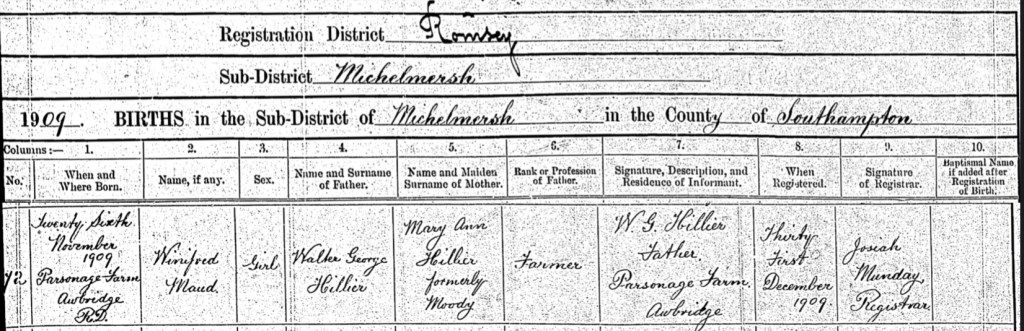 Registration District Romsey
Sub-District Michelmersh
1909. BIRTHS in the Sub-District of Michelmersh in the County of Southampton
Columns:— 1. 2. 3. 4. 5. 6. 7. 8. 9. 10.
No. When and Where Born. Name, if any. Sex. Name and Surname of Father. Name and Maiden Surname of Mother. Rank or Profession of Father. Signature, Description, and Residence of Informant. When Registered. Signature of Registrar. Baptismal Name, if added after Registration of Birth.
72
Twenty Sixth
November
1909
Parsonage Farm
Awbridge
R.D.
Winifred
Maud.
Girl
Walter George
Hillier
Mary Ann
Hillier
formerly
Moody
Farmer
W. G. Hillier
Father.
Parsonage Farm.
Awbridge
Thirty
First
December
1909.
Josiah
Munday
Registrar.